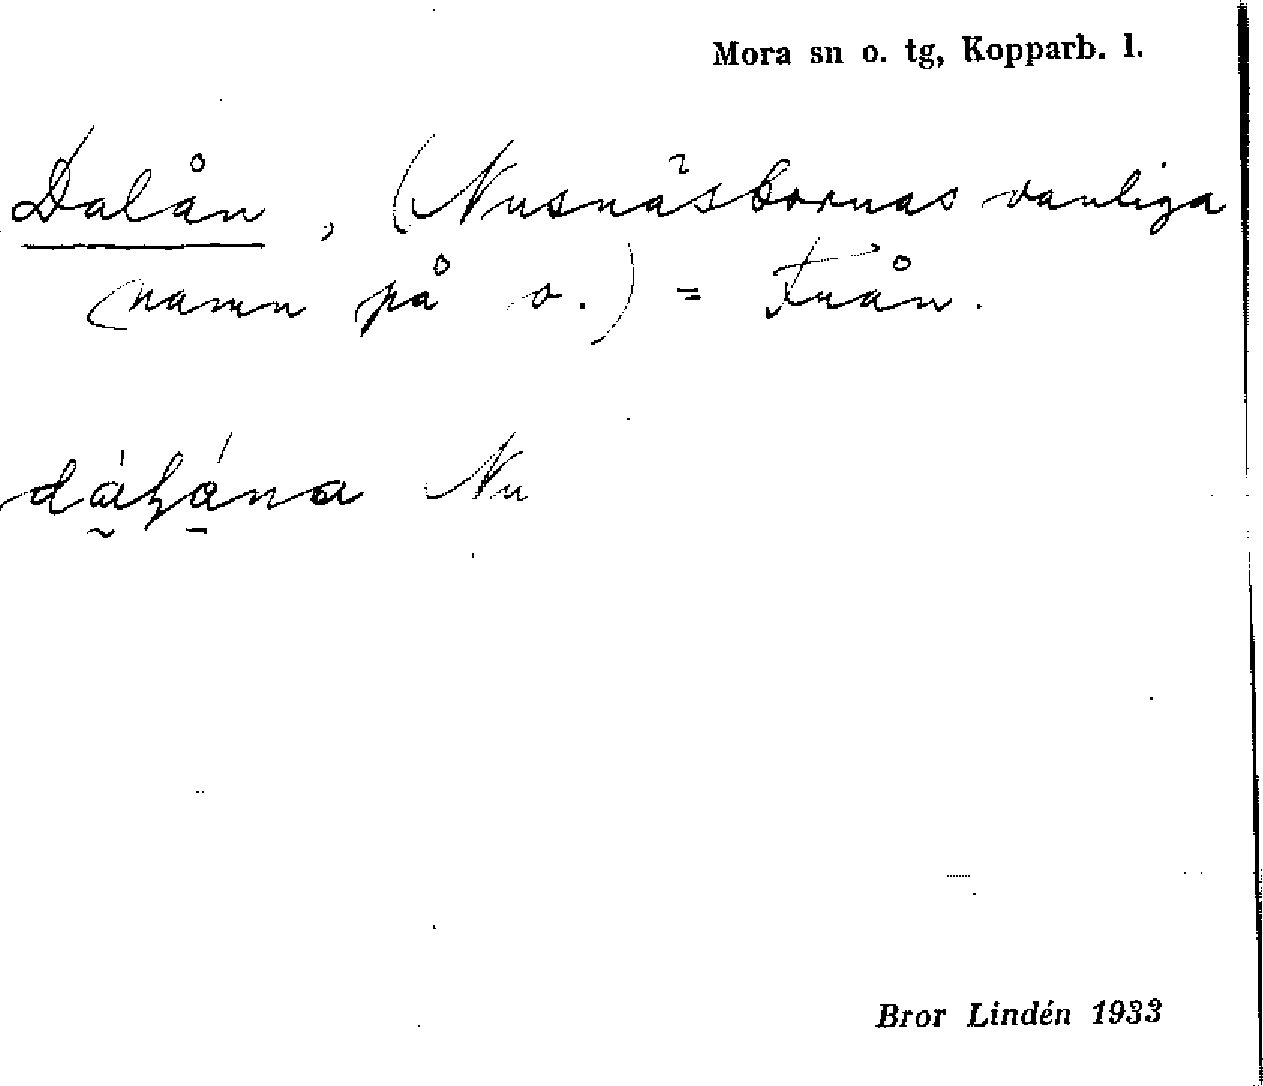 Mora sn o. tg, Kopparb. l.
Dalån, (Nusnäsbornas vanliga
namn på o.) = Fuån.
Nu
Bror Lindén 1933